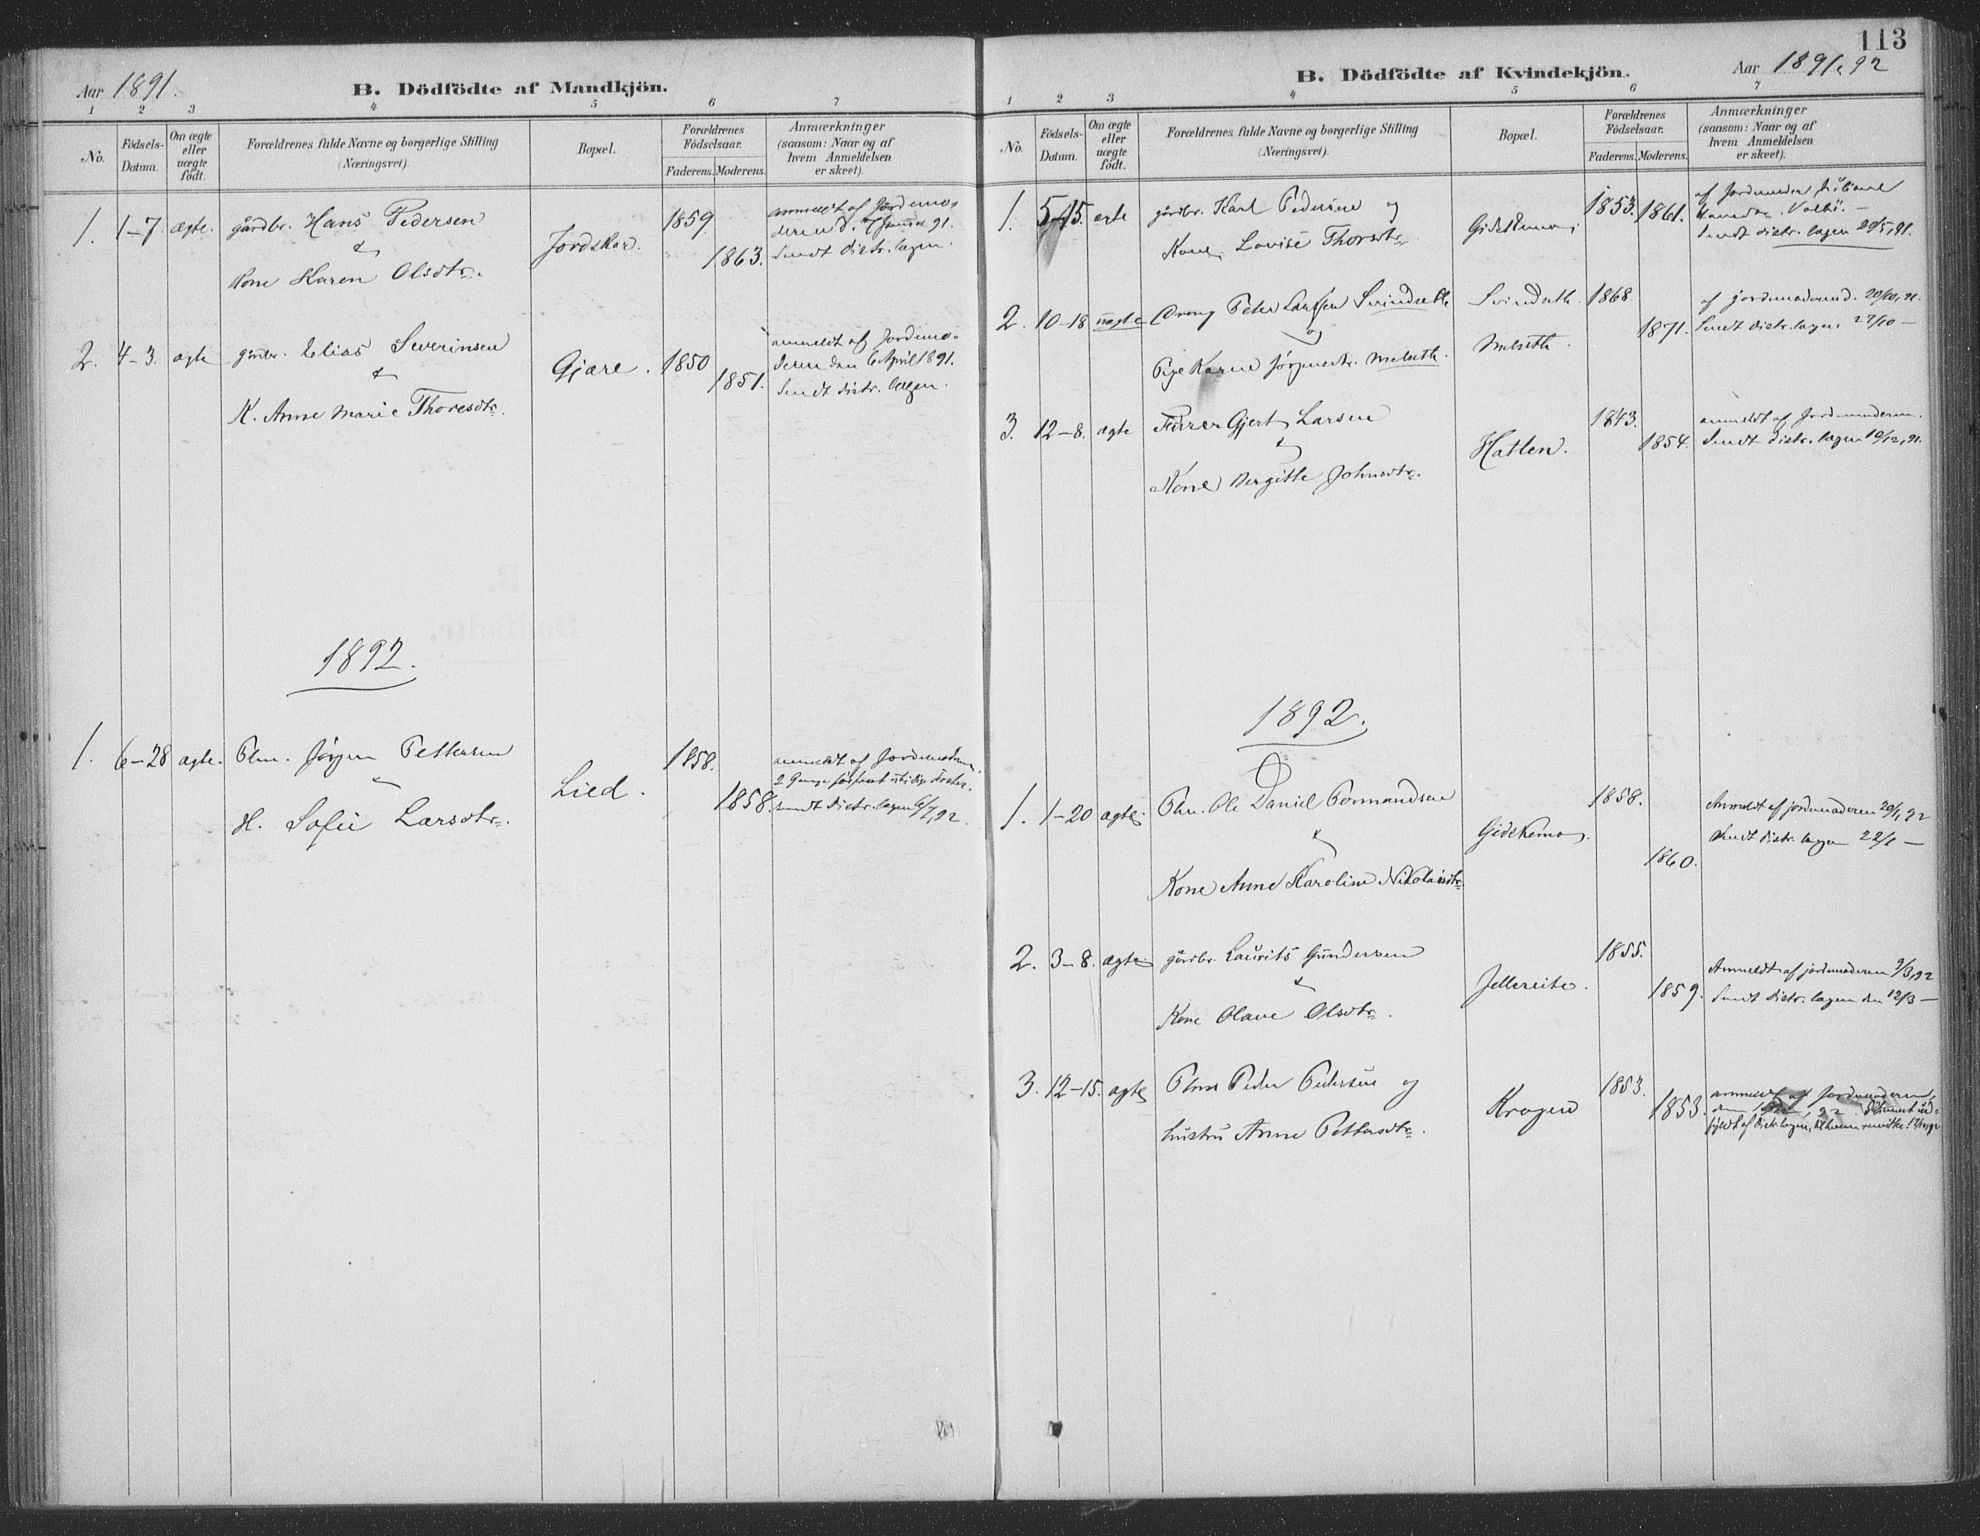 113
Aar 1891.
B. Dödfödte af Mandkjön.
1 2 3 4 5 6 7
No.
Födsels-Datum.
Om ægte eller uægte födt.
Forældrenes fulde Navne og borgerlige Stilling (Næringsvei).
Bopæl.
Forældrenes Födselsaar.
Faderens. Moderens.
Anmærkninger (saasom: Naar og af hvem Anmeldelsen er skeet).
1. 1-7. ægte. gårdbr. Hans Pedersen Jordskar. 1859 anmeldt af Jordemo-
deren d.
Kone Karen Olsdtr. 1863. Sendt distr. lægen.
2. 4-3. ægte gårdbr. Elias Severinsen Gjære. 1850 anmeldt af Jordemo-
deren den 6 April 1891.
K. Anne Marie Thoresdtr. 1851. Sendt distr. lægen.
1892.
1. 6-28 ægte. Plm. Jørgen Pettersen Lied. 1858. anmeldt af Jordemoderen.
H. Sofie Larsdtr. 1858. sendt distr. lægen 6/7, 92.
B. Dödfödte af Kvindekjön.
Aar 1891, 92
1 2 3 4 5 6 7
No.
Födsels-Datum.
Om ægte eller uægte födt.
Forældrenes fulde Navne og borgerlige Stilling (Næringsvei).
Bopæl.
Forældrenes Födselsaar.
Faderens. Moderens.
Anmærkninger (saasom: Naar og af hvem Anmeldelsen er skeet).
1. 5-15. ægte gårdbr. Karl Pedersen og 1853. 1861. af Jordemoder
Kone Lovise Thorsdtr. Sendt distr. lægen 20/5, 91.
2. 10-18 uægte Peter Larssen Svindseth Svindseth. 1868. af jordmoderen d. 20/10, 91.
og 1871. Sendt distr. lægen 27/10 —
Pige Karen Jørgensdtr. Melseth. Melseth.
3. 12-8. ægte Gjert Larsen Hatlen. 1843. anmeldt af Jordemoderen.
1854. Sendt distr. lægen 10/12, 91.
Kone Bergitte Johnsdtr.
1892.
1. 1-20 ægte. Plm. Ole Daniel Pormandsen 1858. Anmeldt af jordmoderen 20/1, 92
Sendt distr. lægen 22/1 —
Kone Anne Karoline Nikolaisdtr. 1860.
2. 3-8. ægte. gårdbr. Laurits Gundersen Jellsreite. 1855. Anmeldt af jordmoderen 9/3, 92
Kone Olave Olsdtr. 1859. Sendt distr. lægen den 12/3 —
3. 12-15. ægte Plm. Peder Pedersen og Krogen 1853. anmeldt af Jordmoderen,
hustru Anne Pettersdtr. 1853.